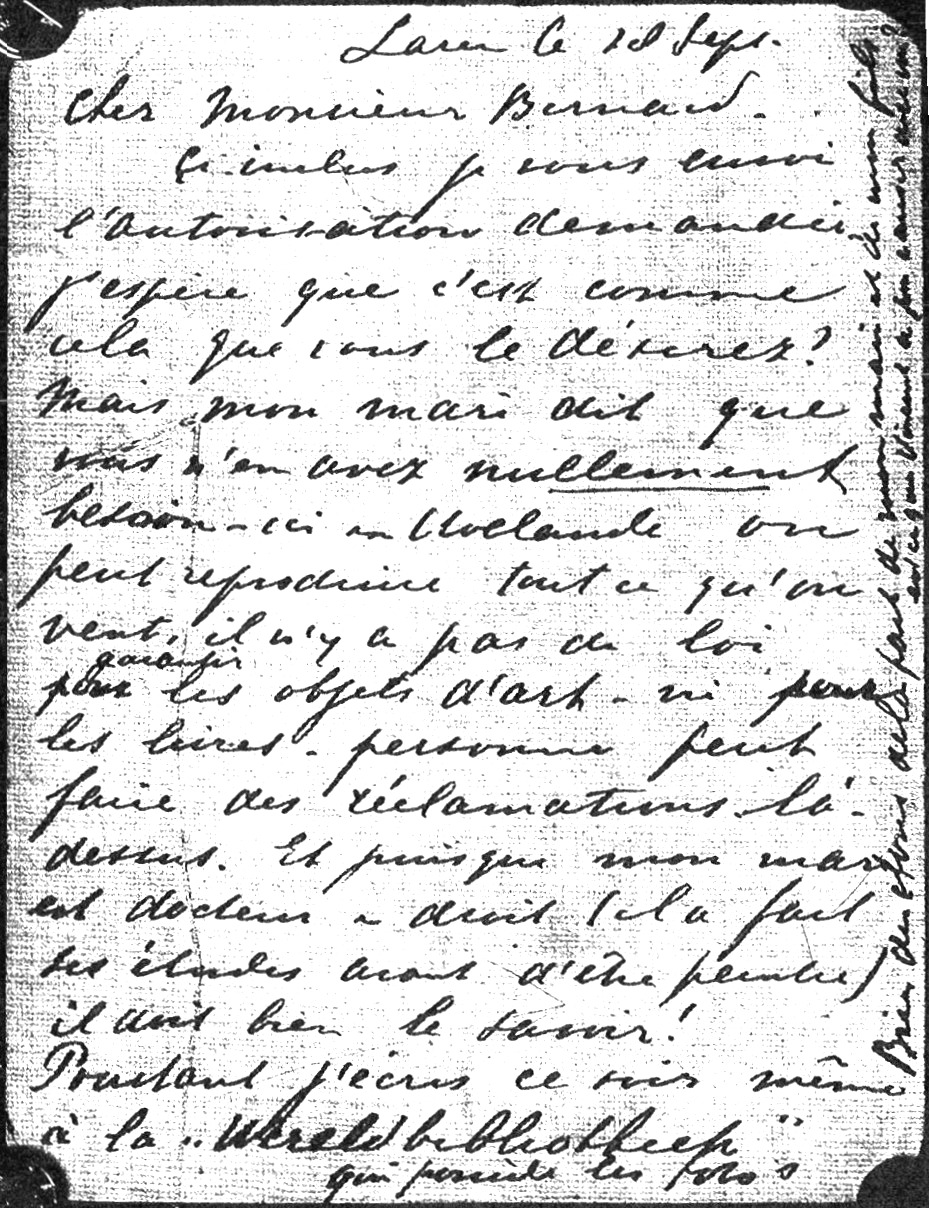 Laren le 18 Sept.
Cher Monsieur Bernard.
Ci-inclus je vous envoi
l'autorisation demandée.
j'espère que c'est comme
cela que vous le désirez?
Mais mon mari dit que
vous n'en avez nullement
besoin - ici en Hollande on
peut reproduire tout ce qu'on
veut, il n'y a pas de loi
garantir
pour les objets d'art - ni pour
les livres - personne peut
faire des réclamations là-
dessus. Et puisque mon mari
est docteur en droit (il a fait
ses études avant d'être peintre)
il doit bien le savoir!
Pourtant j'écris ce soir même
à la „Wereldbibliotheek"
qui possède les foto's
Bien des choses de la part de mon mari et de mon fils